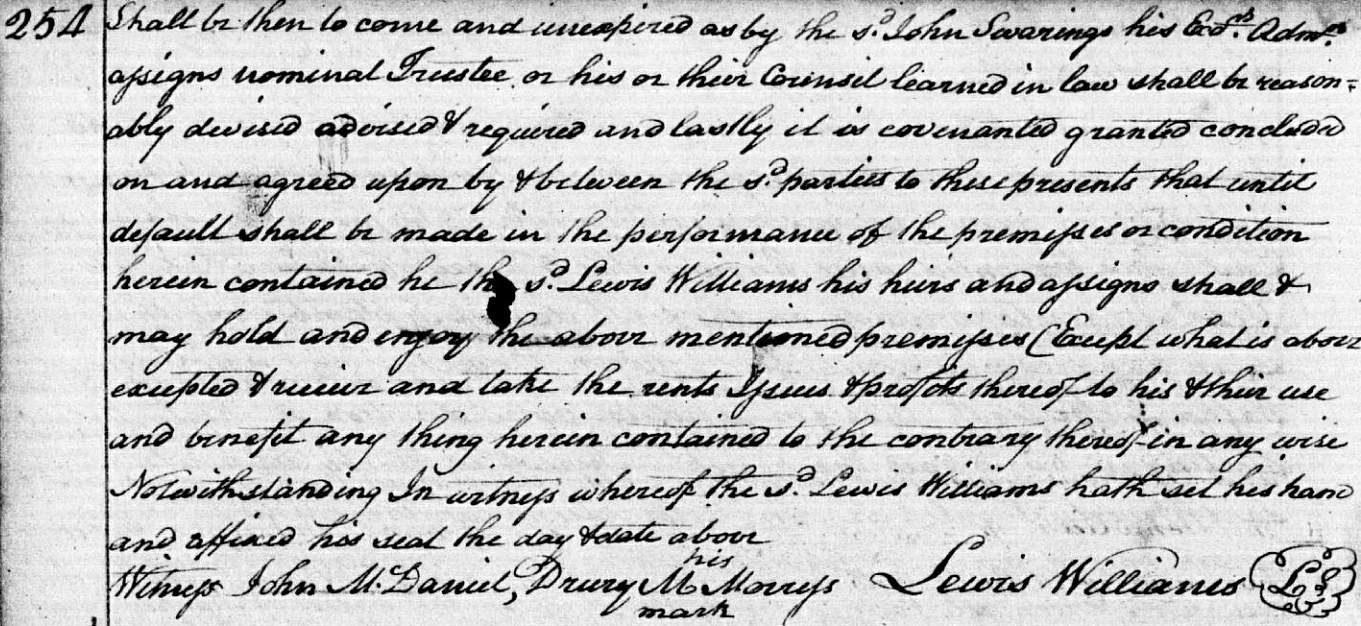 254
Shall be then to come and unexpired as by the sd. John Swarings his Exors. Admrs.
assigns nominal Trustee or his or their Counsil learned in law shall be reason=
ably devised advised & required and lastly it is covenanted granted concluded
on and agreed upon by & between the sd. parties to these presents that until
default shall be made in the performance of the premisses or condition
herein contained he the sd. Lewis Williams his heirs and assigns shall &
may hold and enjoy the above mentioned premisses (Except what is above
excepted & receive and take the rents Issues & profits thereof to his & their use
and benefit any thing herein contained to the contrary thereof in any wise
Notwithstanding In witness whereof the sd. Lewis Williams hath set his hand
and affixed his seal the day & date above
his
Witness John McDaniel, Drury M Morress Lewis Williams LS
mark